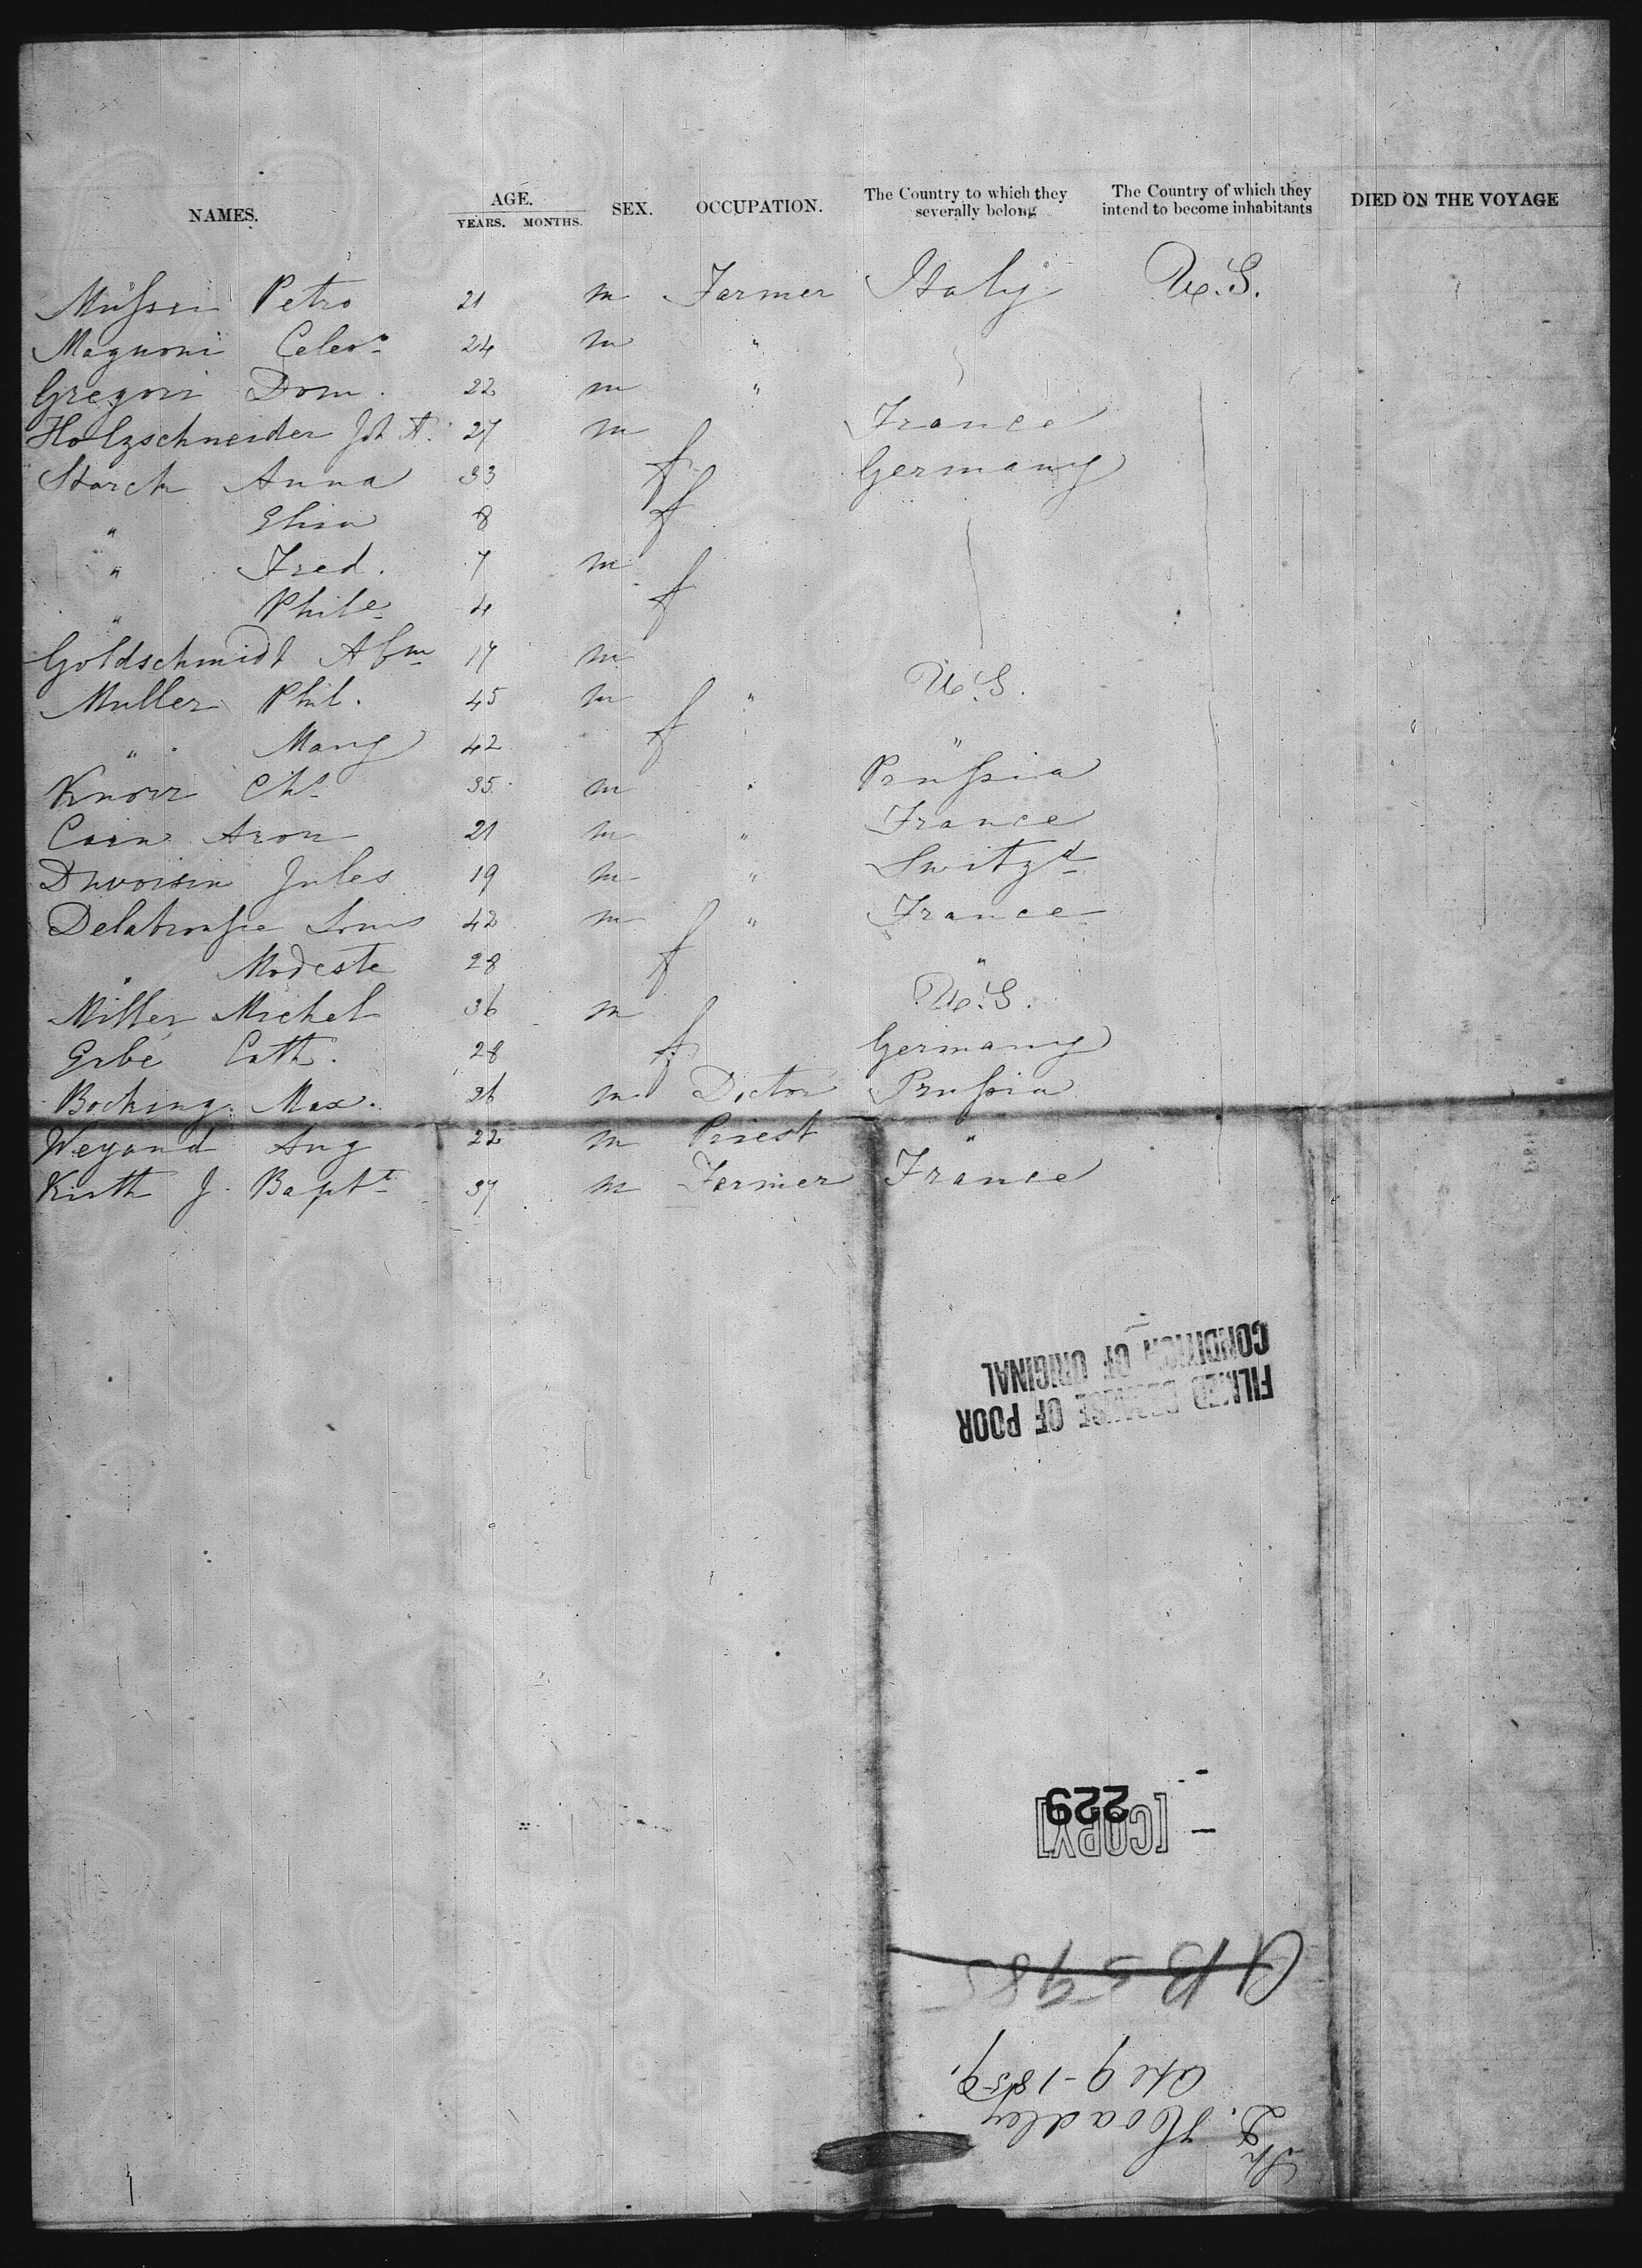 NAMES. AGE. YEARS. MONTHS. SEX. OCCUPATION. The Country to which they severally belong The Country of which they intend to become inhabitants DIED ON THE VOYAGE
Petro 21 m Farmer Italy U.S.
Magnoni Celeso 24 m "
Gregori Dom. 22 m "
Holzschneider Joh A. 27 m France
Storch Anna 33 f Germany
" Elisa 8 f
" Fred. 7 m
" Phile 4 f
Goldschmidt Abm 17 m
Muller Phil. 45 m " U.S.
" Mary 42 f "
Knorr Chs 35 m " Prußia
Cain Aron 21 m " France
Duvoisin Jules 19 m " Switzd
Delatronße Louis 42 m " France
" Modeste 28 f "
Miller Michel 36 m U.S.
Erbé Cath. 28 f Germany
Bocking Max. 26 m Doctor Prußia
Weyand Aug 22 m Priest "
Kirth J. Baptt 37 m Farmer France
FILMED BECAUSE OF POOR
CONDITION OF ORIGINAL
229
[COPY]
Sh
D. Hoadley
9-1859.